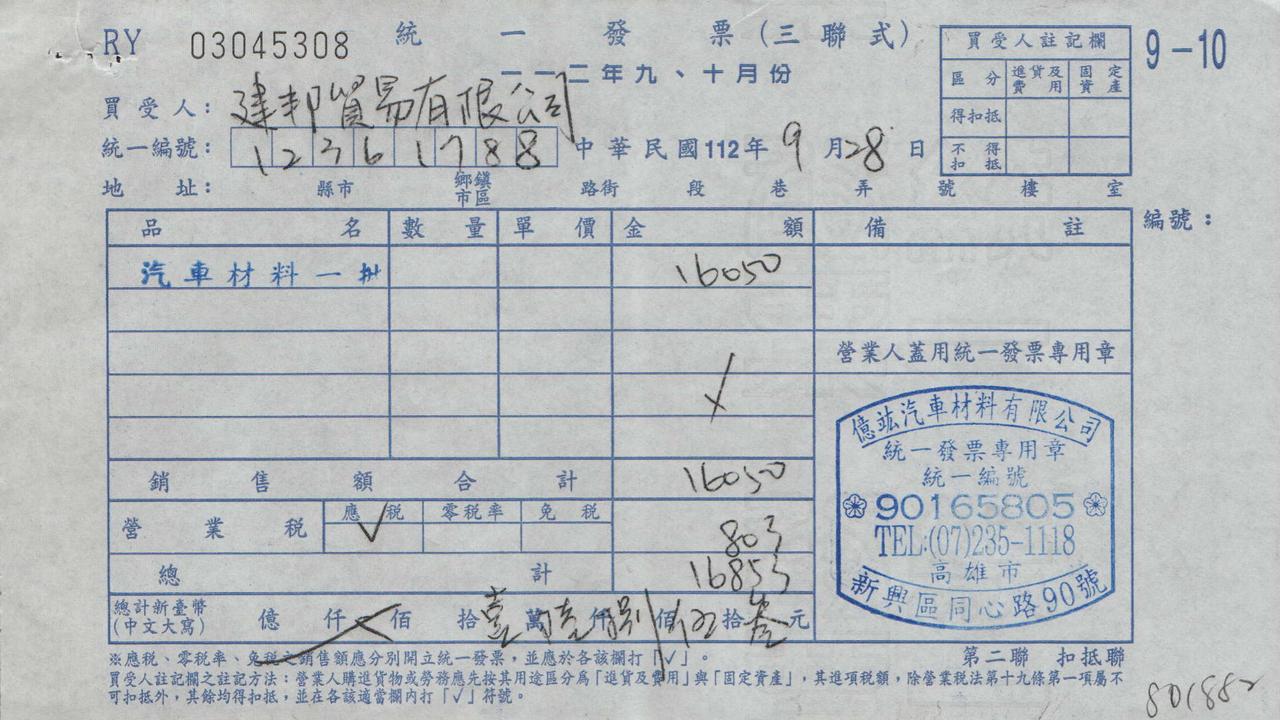 RY 03045308 統一發票(三聯式) 9-10
一一二年九、十月份
買受人: 建邦貿易有限公司
統一編號: 12361788 中華民國112年9月28日
地址: 縣市 鄉鎮市區 路街 段 巷 弄 號 樓 室
買受人註記欄
區分 進貨及費用 固定資產
得扣抵
不得扣抵
品名 數量 單價 金額 備註 編號:
汽車材料一批 16050
營業人蓋用統一發票專用章
銷售額合計 16050
營業稅 應稅 √ 零稅率 免稅 803
總計 16853
總計新臺幣(中文大寫) 億 仟 佰 拾壹萬陸仟捌佰伍拾叁元
億竑汽車材料有限公司
統一發票專用章
統一編號
90165805
TEL:(07)235-1118
高雄市
新興區同心路90號
※應稅、零稅率、免稅之銷售額應分別開立統一發票,並應於各該欄打「√」。
第二聯 扣抵聯
買受人註記欄之註記方法:營業人購進貨物或勞務應先按其用途區分為「進貨及費用」與「固定資產」,其進項稅額,除營業稅法第十九條第一項屬不
可扣抵外,其餘均得扣抵,並在各該適當欄內打「√」符號。
801882